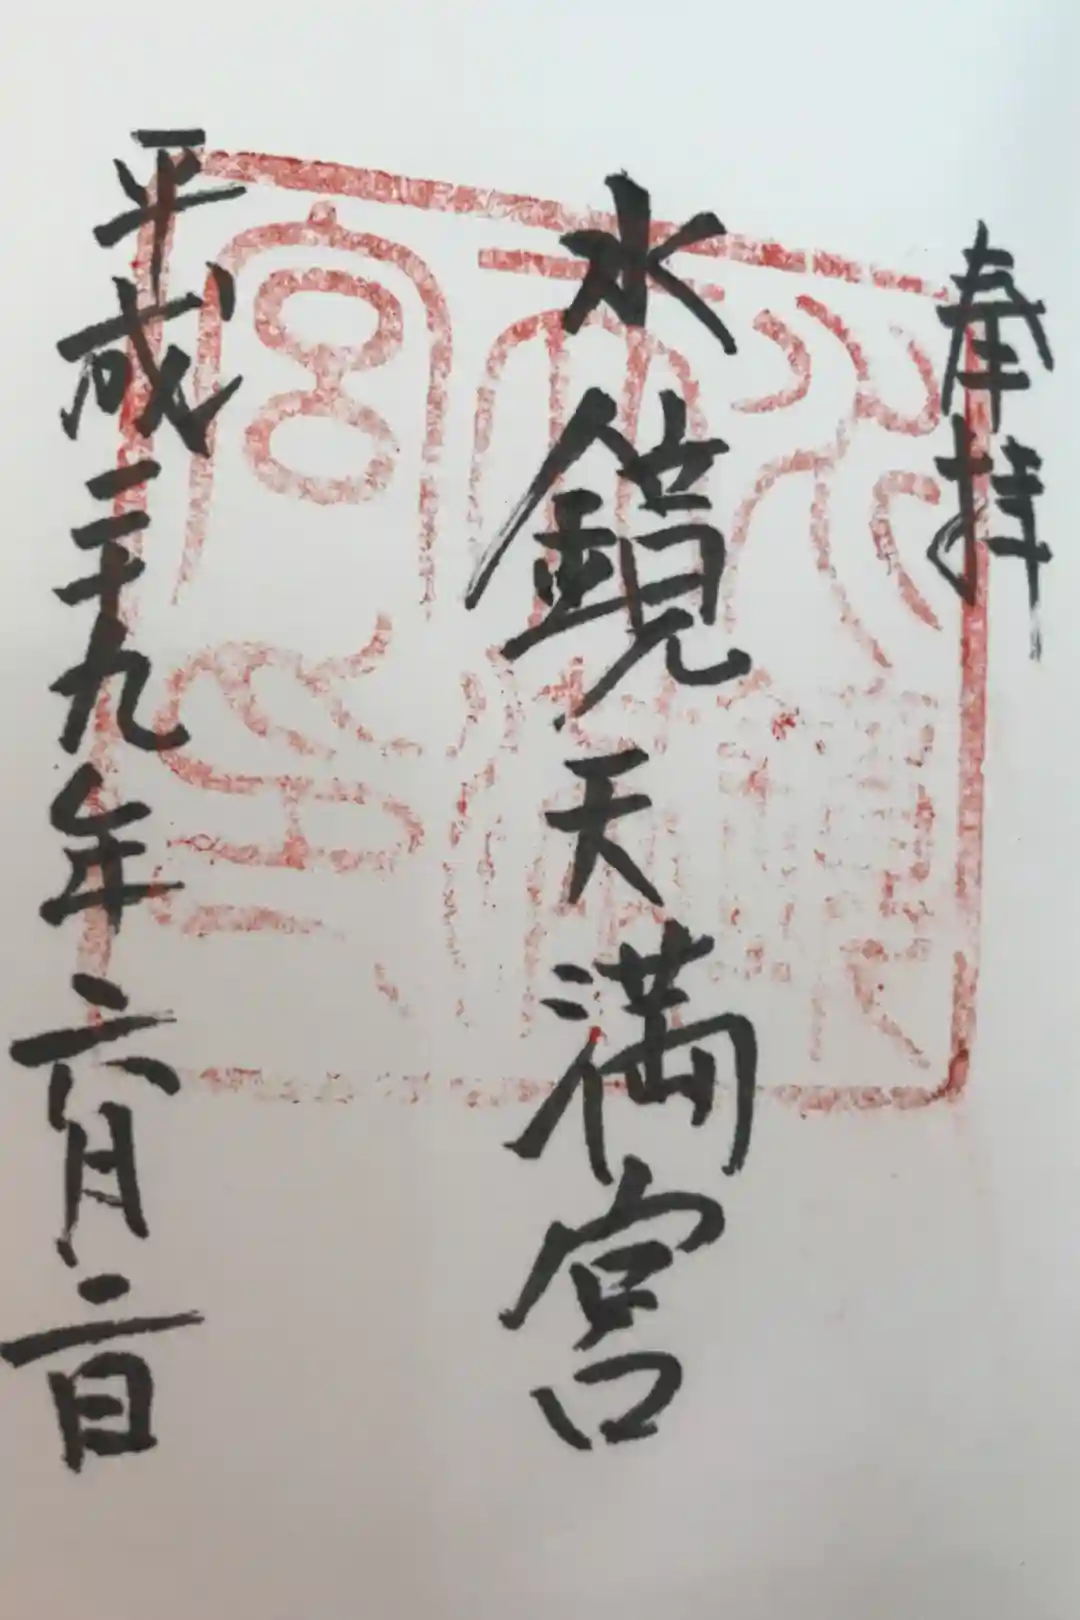 奉拝
水鏡天満宮
平成二十九年六月二日